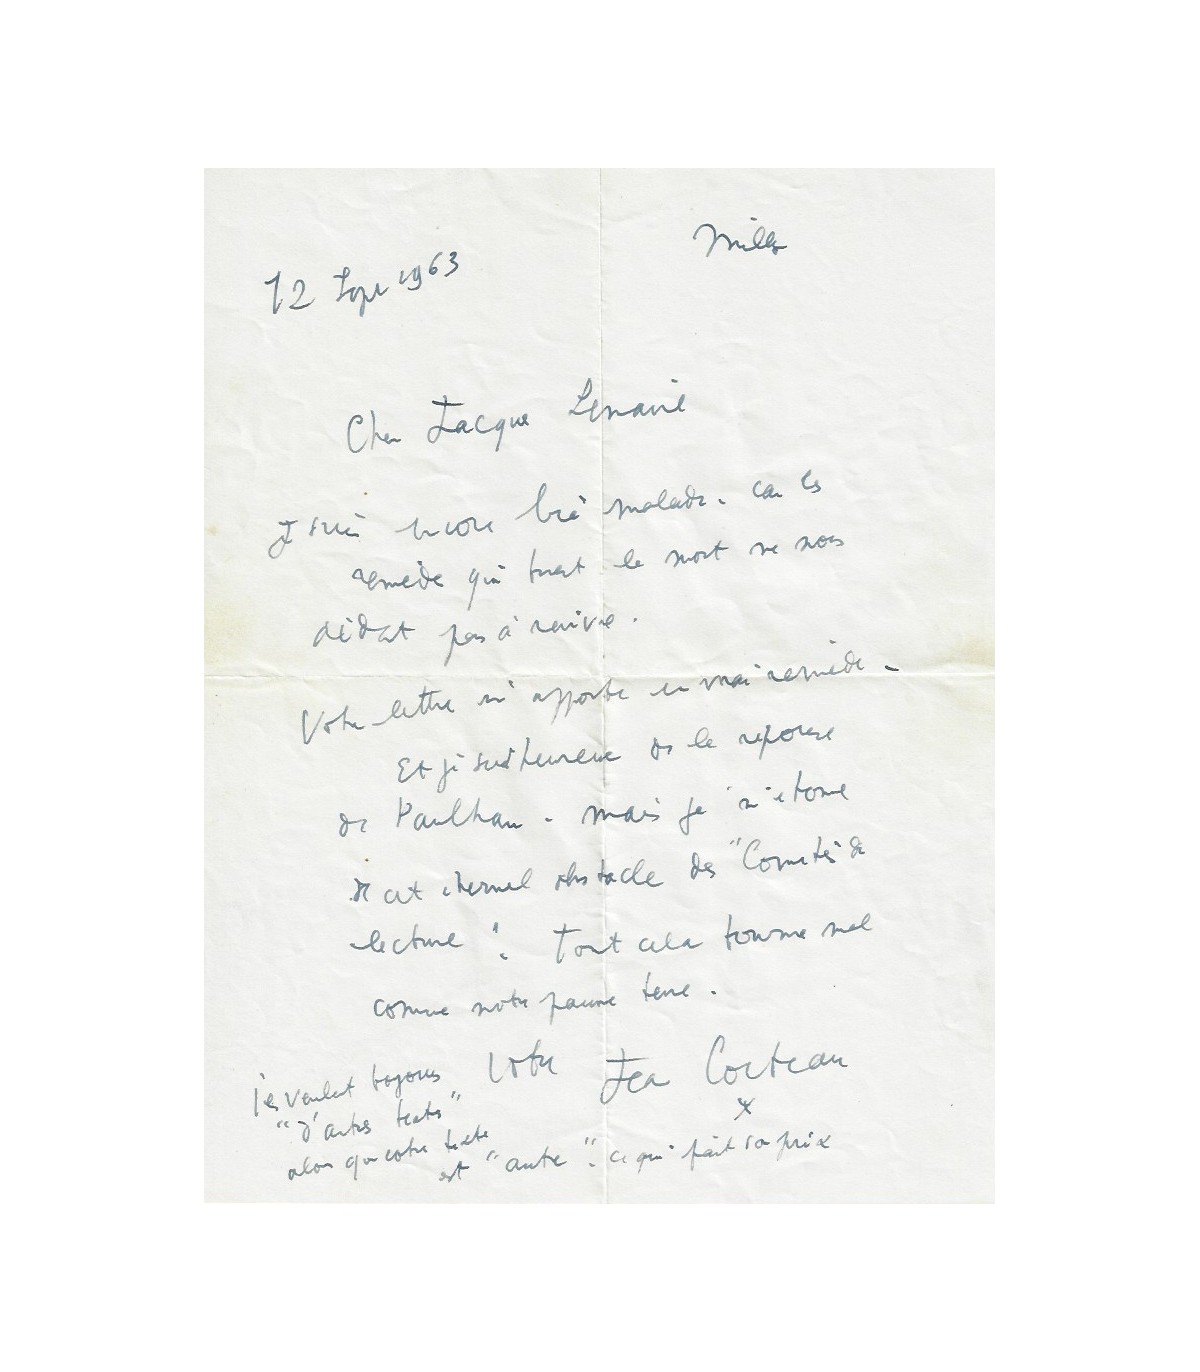 Milly
12 Sept 1963
Cher Jacques Lemarié
Je suis encore très malade. Car les
remèdes qui tuent le mort ne nous
aident pas à revivre.
Votre lettre m'apporte un vrai remède.
Et je suis heureux de la réponse
de Paulhan. Mais je m'étonne
de cet éternel obstacle des "Comités de
lecture". Tout cela tourne mal
comme notre pauvre terre.
Votre Jean Cocteau
ils veulent toujours
"d'autres textes"
alors que votre texte
est "autre". Ce qui fait son prix